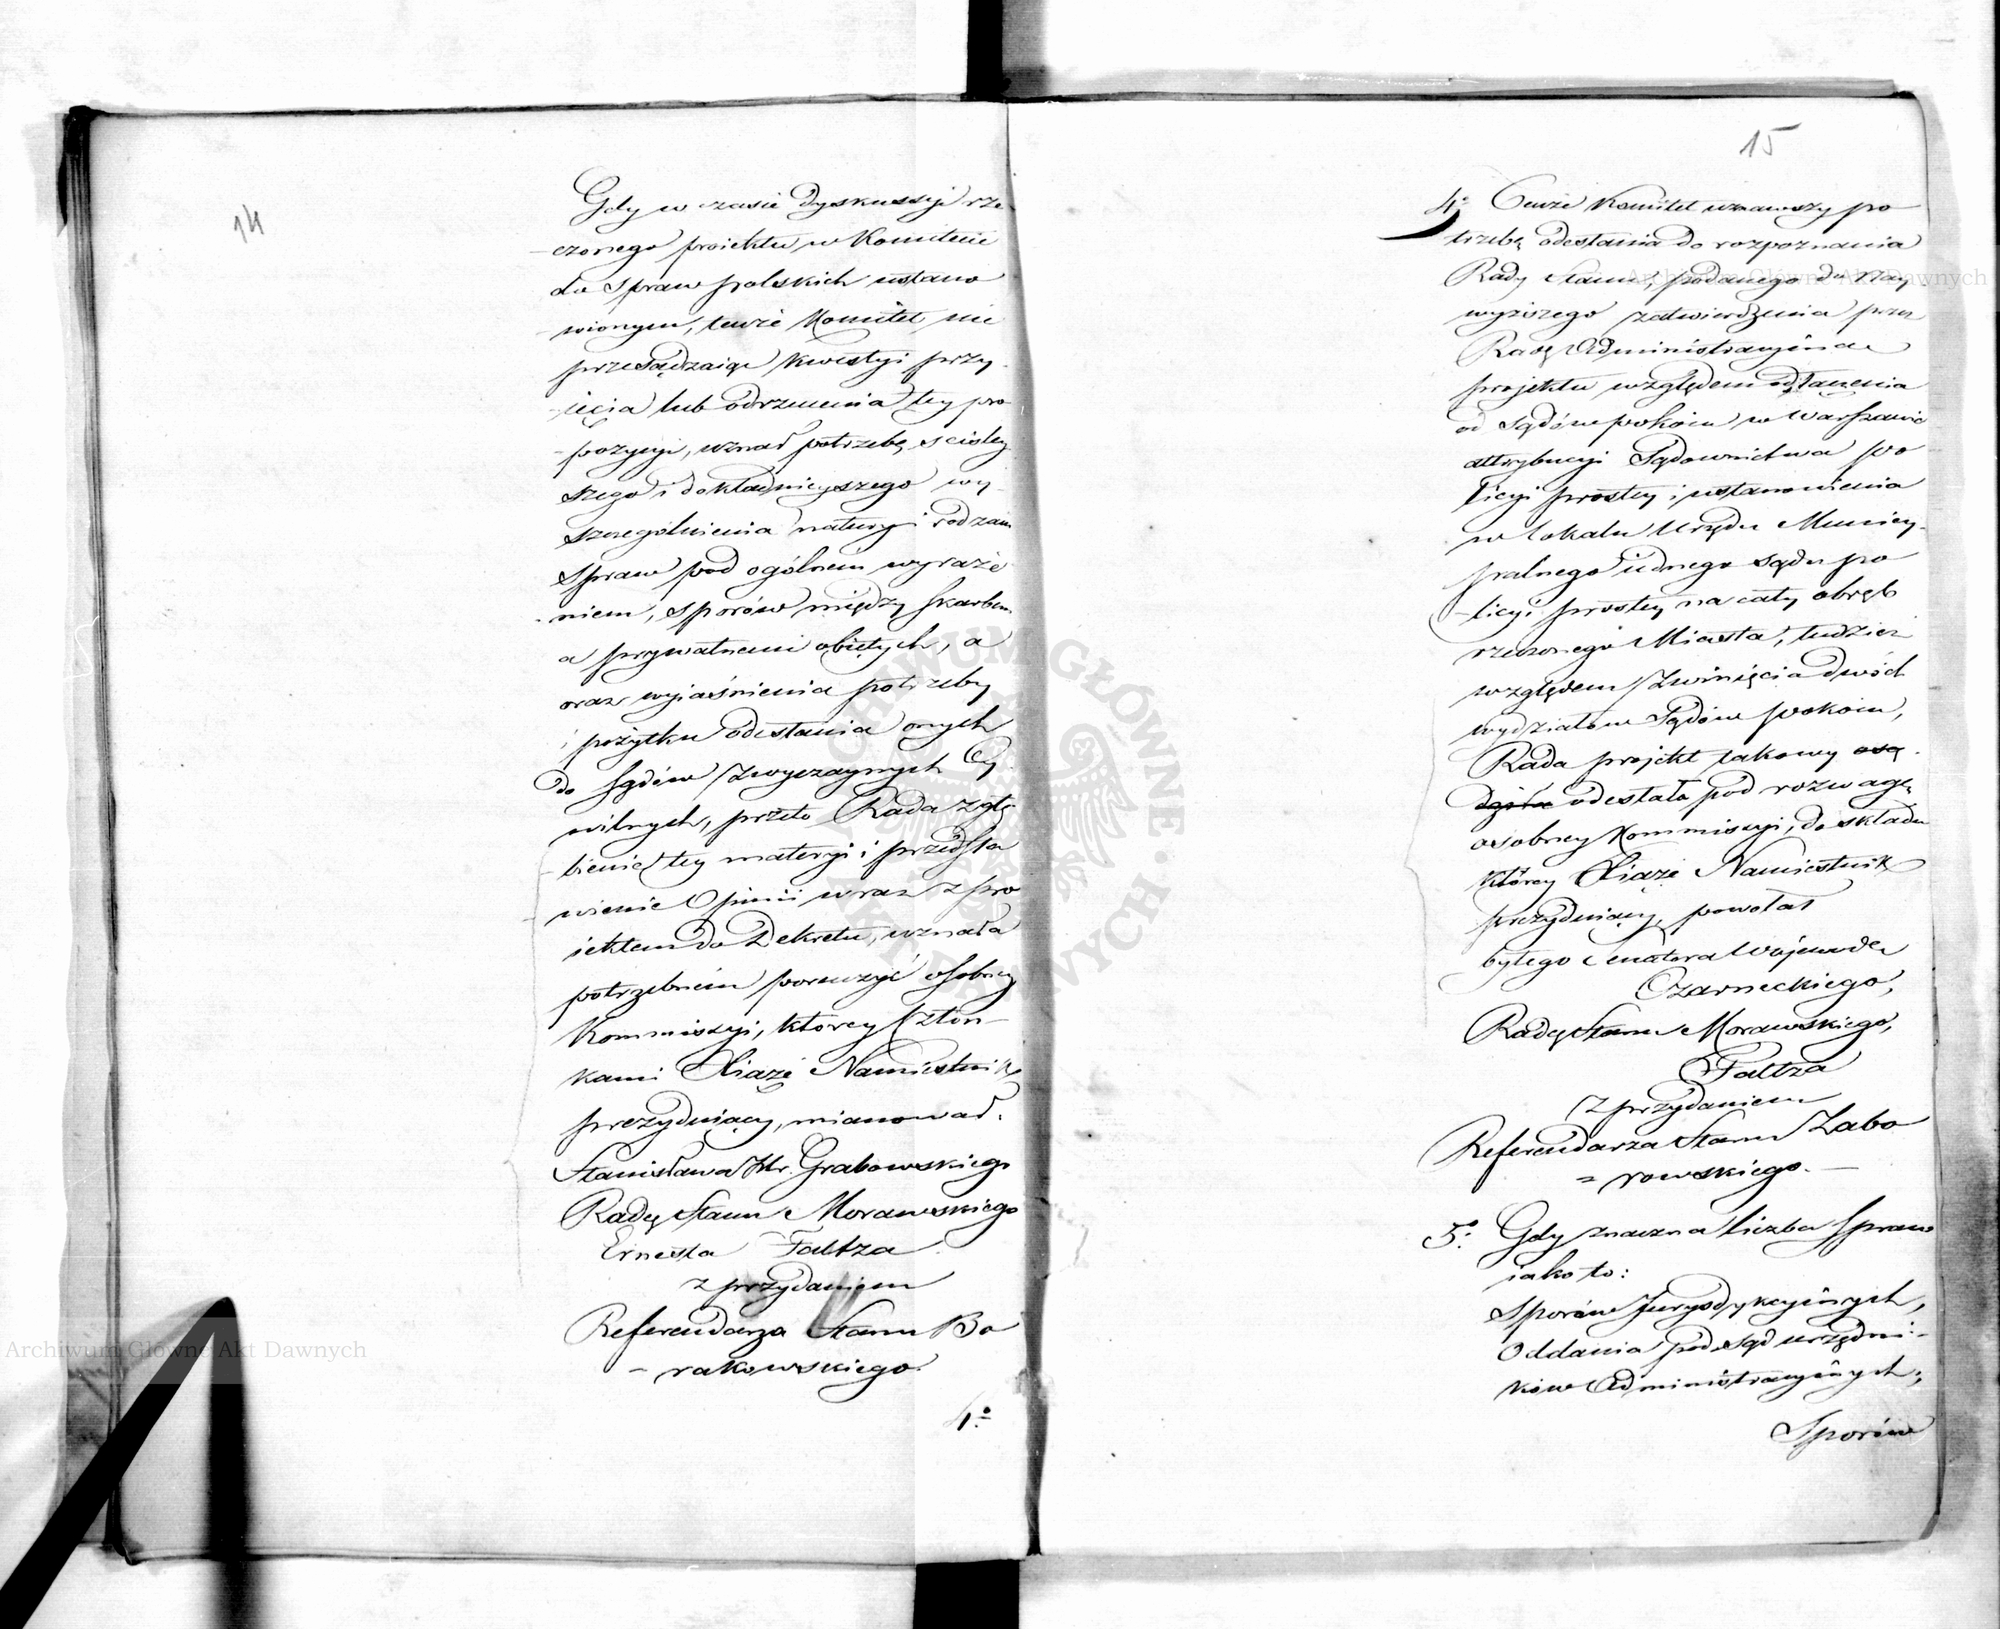 14
Gdy w czasie dyskussyi rze-
-czonego proiektu, w Komitecie
do spraw polskich ustano
-wionym, tenże Komitet nie
przesądzaiąc kwestyi przy-
-ięcia lub odrzucenia tey pro
-pozycyi, uznał potrzebę, ścisley
szego i dokładnieyszego wy-
szczególnienia natury i rodzaiu
spraw pod ogólnem wyraże-
-niem, sporów między skarbem
a prywatnemi obiętych, a
oraz wyiaśnienia potrzeby
i pożytku odesłania onych
do sądów zwyczaynych Cy-
wilnych, przeto Rada zgłę-
-bienie tey materyi i przedsta
wienie Opinii wraz z pro
iektem do Dekretu, uznała
potrzebnem poruczyć osobney
Kommissyi, którey Człon-
kami Xiąże Namiestnik
prezyduiący, mianował.
Stanisława Hr. Grabowskiego
Radcę Stanu Morawskiego
Ernesta Faltza
z przydaniem
Referendarza Stanu Bo
- rakowskiego.
4°.
15
4° Tenże Komitet uznawszy po
trzebę odesłania do rozpoznania
Rady Stanu, podanego do Nay
wyższego zatwierdzenia przez
Radę Administracyiną
projektu względem odłączenia
od Sądów pokoiu w Warszawie
attrybucyi Sądownictwa po
licyi prostey i ustanowienia
w lokalu Urzędu Municy-
palnego iednego sądu po
-licyi prostey na cały obręb
rzeczonego Miasta, tudzież
względem zwinięcia dwóch
wydziałów Sądów pokoiu,
Rada projekt takowy osą-
dziła odesłała pod rozwagę
osobney Kommissyi, do składu
którey Xiąże Namiestnik
prezyduiący, powołał
byłego Senatora Wojewodę
Czarneckiego,
Radcę Stanu Morawskiego,
Faltza
z przydaniem
Referendarza Stanu Zabo
= rowskiego. —
5°. Gdy znaczna liczba spraw
iako to:
Sporów Jurysdykcyinych,
Oddania pod Sąd urzędni-
ków Administracyinych,
Sporów
Archiwum Główne Akt Dawnych
Archiwum Główne Akt Dawnych
ARCHIWUM GŁÓWNE AKT DAWNYCH